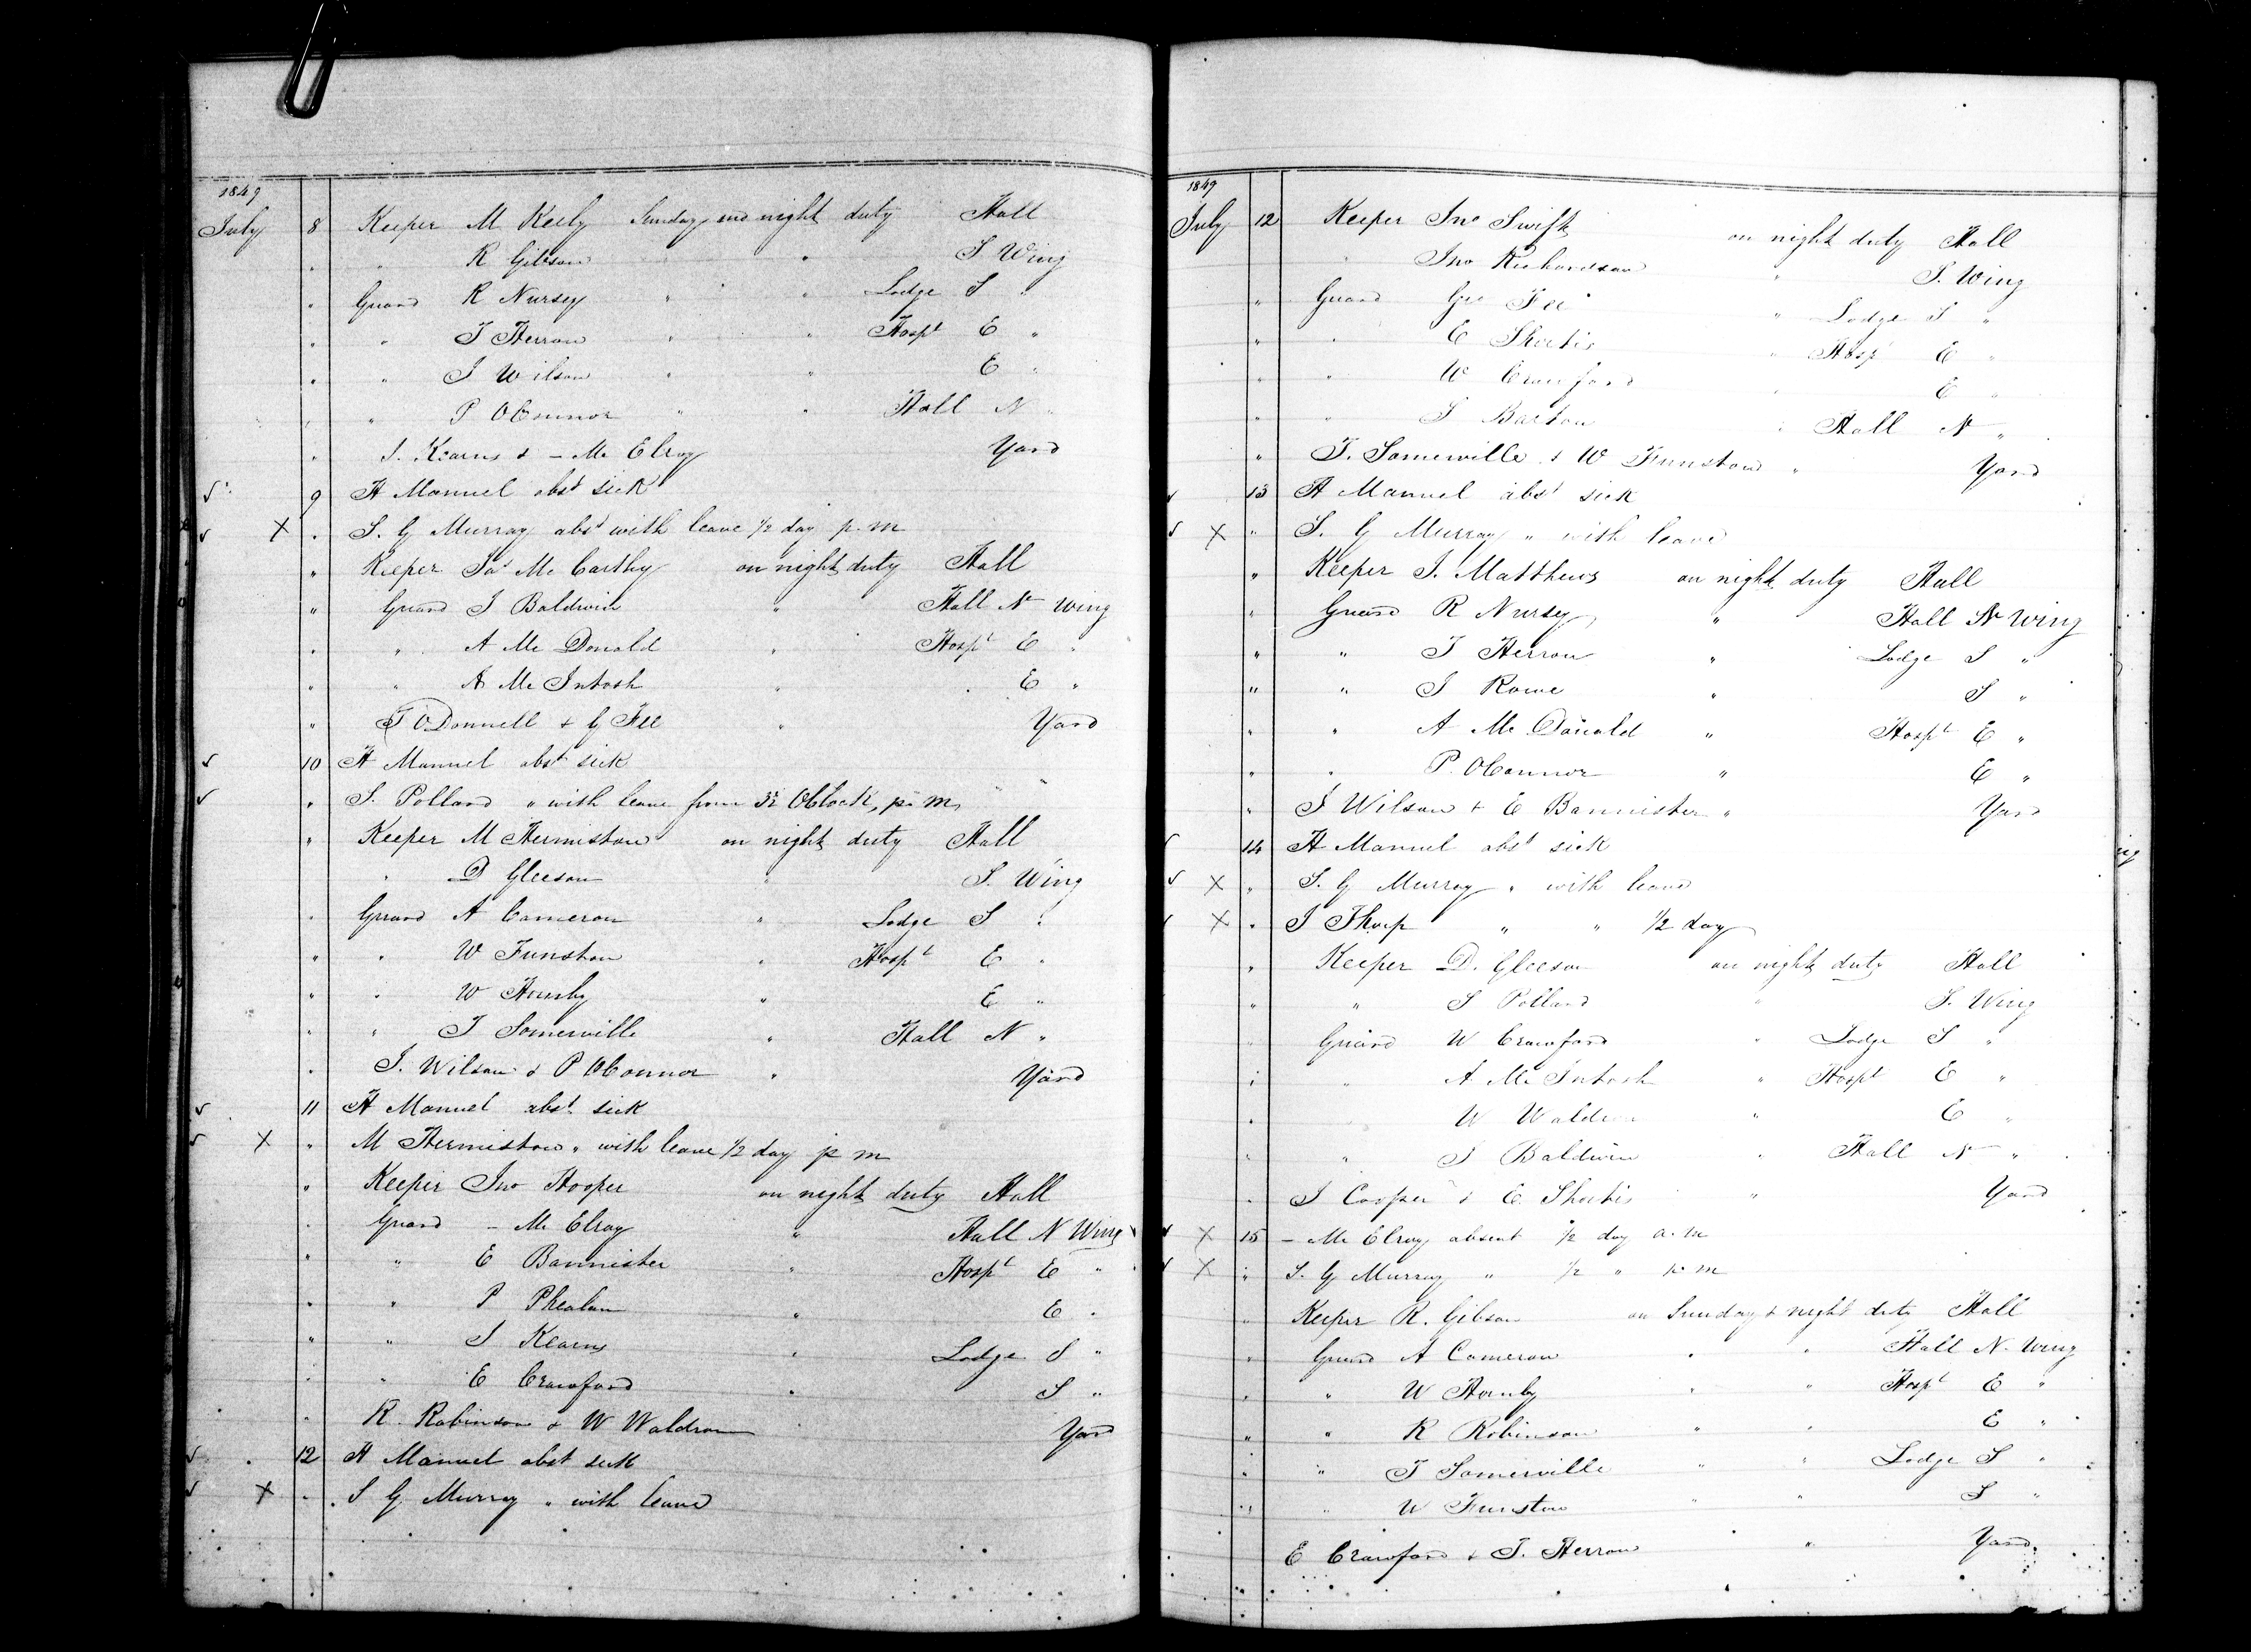 1849
July 8 Keeper M Keely Sunday and night duty Hall
" " R Gibson " " S Wing
" Guard R Nursey " " Lodge S "
" " T Herron " " Hospt E "
" " J Wilson " " E "
" " P OConnor " " Hall N "
" J. Kearns & - Mc Elroy Yard
√ 9 H Manuel abst sick
√ X " S. G Murray abst with leave 1/2 day p. m
" Keeper Jas Mc Carthy on night duty Hall
" Guard J Baldwin " Hall N Wing
" " A Mc Donald " Hospt E "
" " A Mc Intosh " E "
" T ODonnell & G Fee " Yard
√ 10 H Manuel abst sick
√ " S. Pollard " with leave from OClock, p. m.
" Keeper M Hermiston on night duty Hall
" " D Gleeson " S. Wing
" Guard A Cameron " Lodge S "
" " W Funston " Hospt E "
" " W Hornby " E "
" " T Somerville " Hall N "
" J. Wilson & P OConnor " Yard
√ 11 H Manuel abst sick
√ X " M Hermiston " with leave 1/2 day p m
" Keeper Jno Hooper on night duty Hall
" Guard - Mc Elroy " Hall N Wing
" " E Bannister " Hospt E "
" " P Phealan " E "
" " J Kearns " Lodge S "
" " E Crawford " S "
" R. Robinson & W Waldron " Yard
√ 12 H Manuel abst sick
√ X " S G Murray " with leave
1849
July 12 Keeper Jno Swift on night duty Hall
" Jno Richardson " S. Wing
" Guard Geo Fee " Lodge S "
" " E Shortis " Hospt E "
" " W Crawford " E "
" " J Barton " Hall N "
" T. Somerville & W Funston " Yard
√ 13 H Manuel abst sick
√ X " S. G Murray " with leave
" Keeper J. Matthews on night duty Hall
" Guard R Nursey " Hall N Wing
" " T Herron " Lodge S "
" " J Rowe " S "
" " A Mc Donald " Hospt E "
" " P. OConnor " E "
" J Wilson & E Bannister " Yard
√ 14 H Manuel abst sick
√ X " S. G Murray " with leave
√ X " J Thorp " " 1/2 day
" Keeper D. Gleeson on night duty Hall
" " S Pollard " S. Wing
" Guard W Crawford " Lodge S "
" " A. Mc Intosh " Hospt E "
" " W Waldron " E "
" " J Baldwin " Hall N "
" J Cooper & E. Shortis " Yard
√ X 15 - Mc Elroy absent 1/2 day a. m
√ X " S. G Murray " 1/2 " p. m
" Keeper R. Gibson on Sunday & night duty Hall
" Guard A Cameron " " Hall N. Wing
" " W Hornby " " Hospt E "
" " R Robinson " " E "
" " T Somerville " " Lodge S "
" " W Funston " " S "
E Crawford & T. Herron " Yard